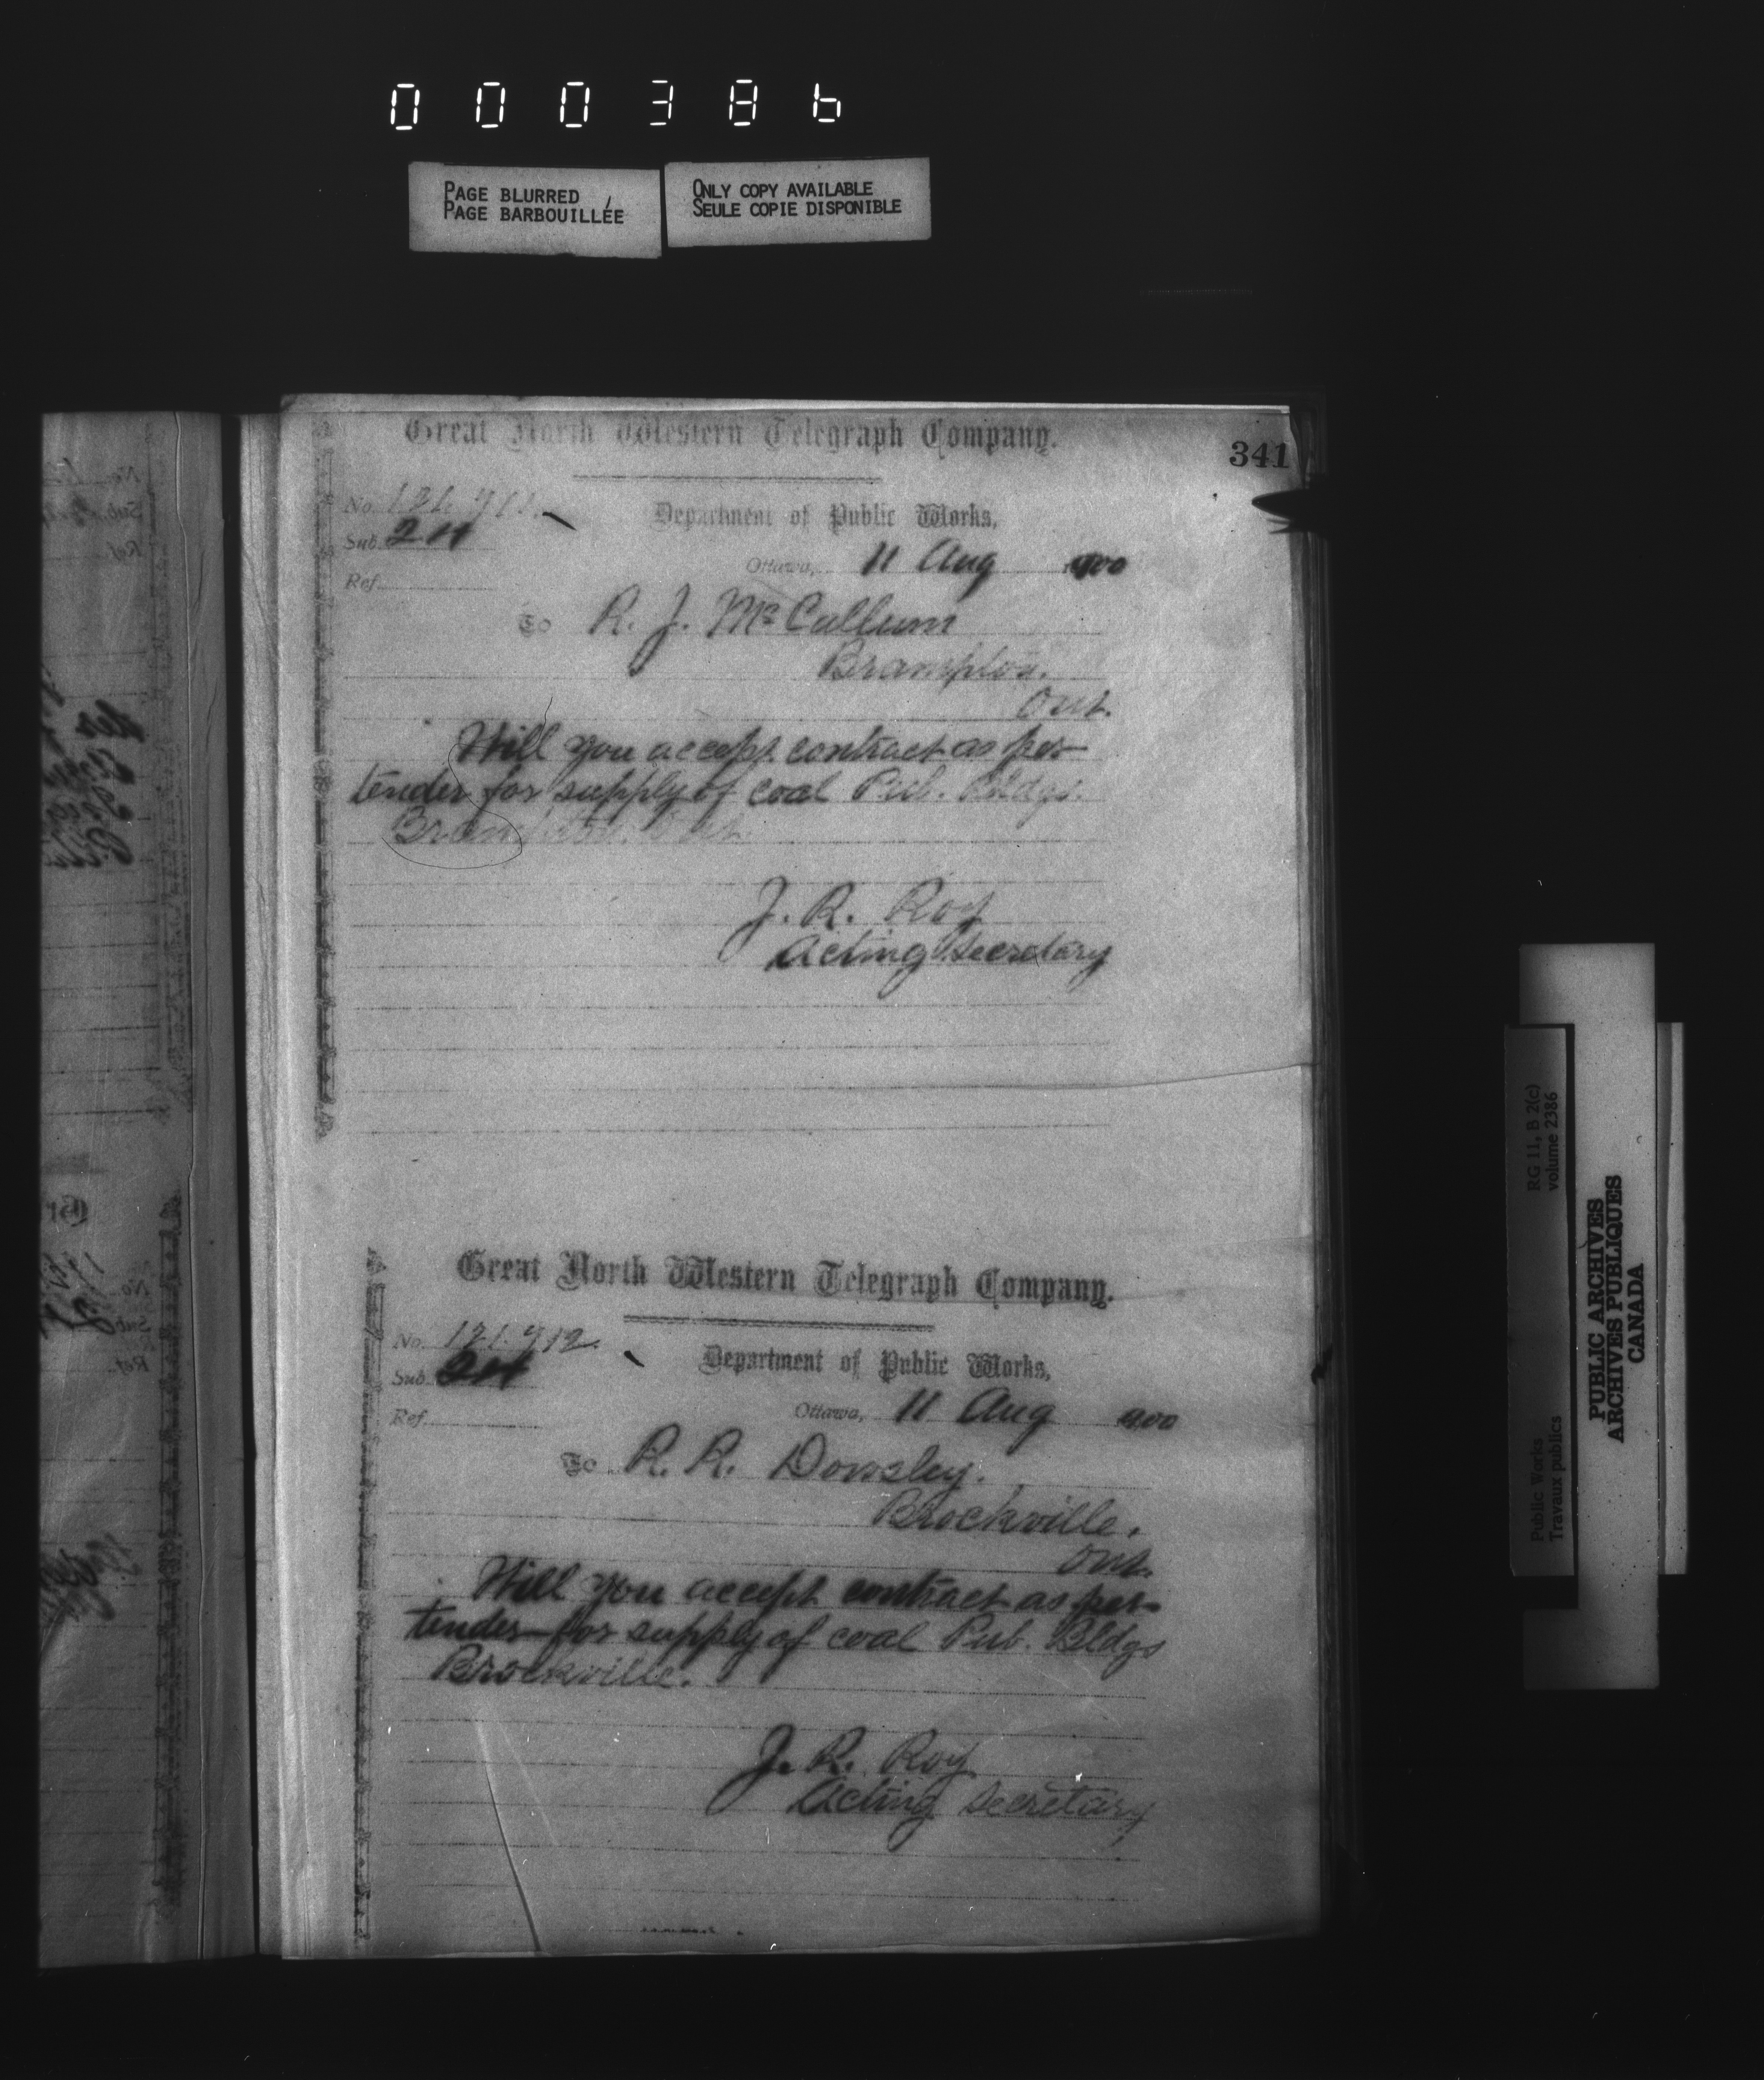 000386
PAGE BLURRED
PAGE BARBOUILLÉE
ONLY COPY AVAILABLE
SEULE COPIE DISPONIBLE
341
Great North Western Telegraph Company.
No. 121.711.
Department of Public Works,
Sub.
Ottawa, 11 Aug 1900
Ref.
To R. J. McCullum
Brampton.
Ont.
Will you accept contract as per
tender for supply of coal Pub. Bldgs.
Brampton. Ont.
J. R. Roy
Acting Secretary
Great North Western Telegraph Company.
No. 121.712.
Department of Public Works,
Sub.
Ottawa, 11 Aug 900
Ref.
To R. R. Dowsley.
Brockville.
Ont.
Will you accept contract as per
tender for supply of coal Pub. Bldgs
Brockville.
J. R. Roy
Acting Secretary
RG 11, B 2(c)
volume 2386
Public Works
Travaux publics
PUBLIC ARCHIVES
ARCHIVES PUBLIQUES
CANADA